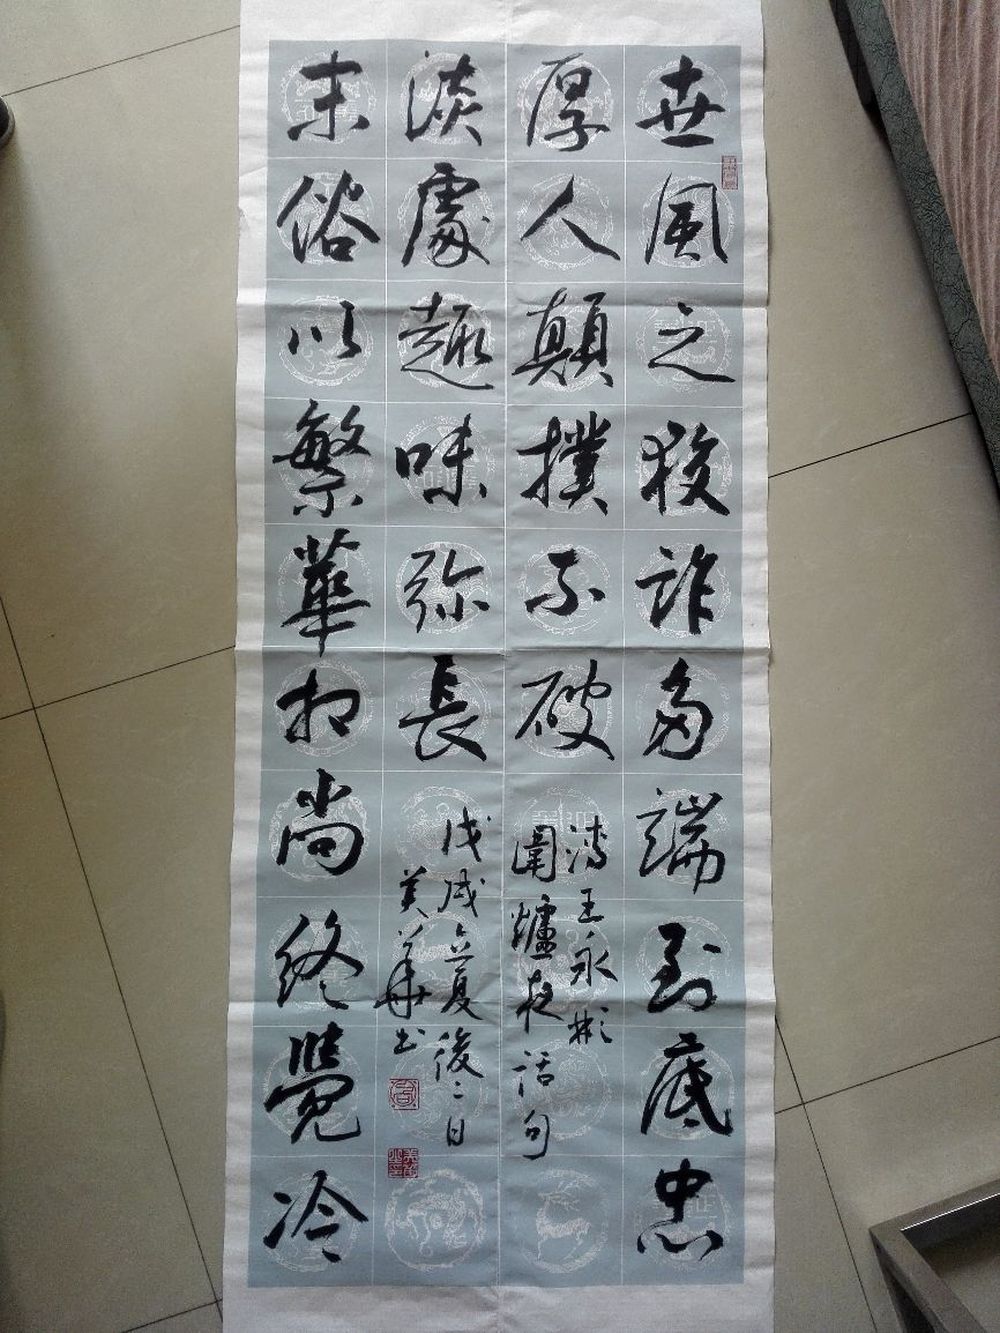 世風之狡詐多端到底忠
厚人顛撲不破
清王永彬
圍爐夜話句
末俗以繁華相尚終覺冷
淡處趣味弥長
戊戌立夏後二日
美華书